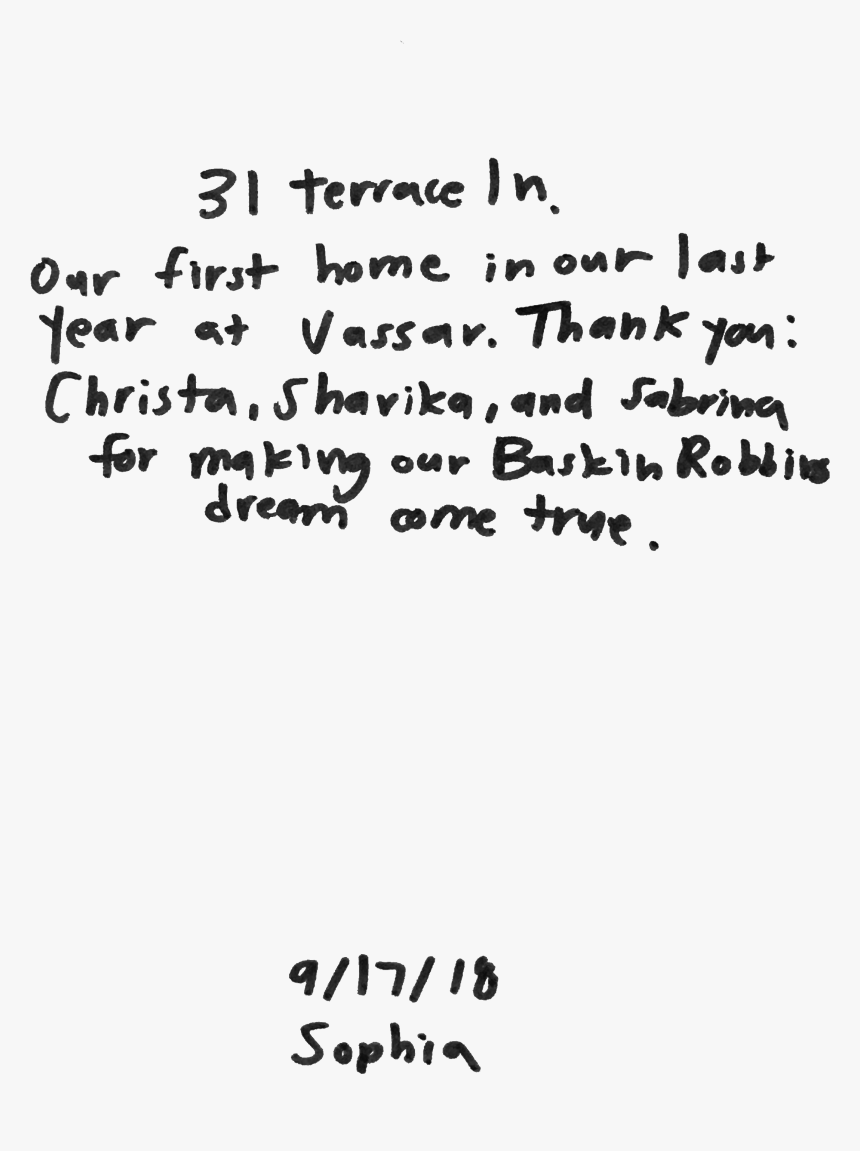 31 terrace ln.
Our first home in our last
year at Vassar. Thank you:
Christa, Sharika, and Sabrina
for making our Baskin Robbins
dream come true.
9/17/18
Sophia